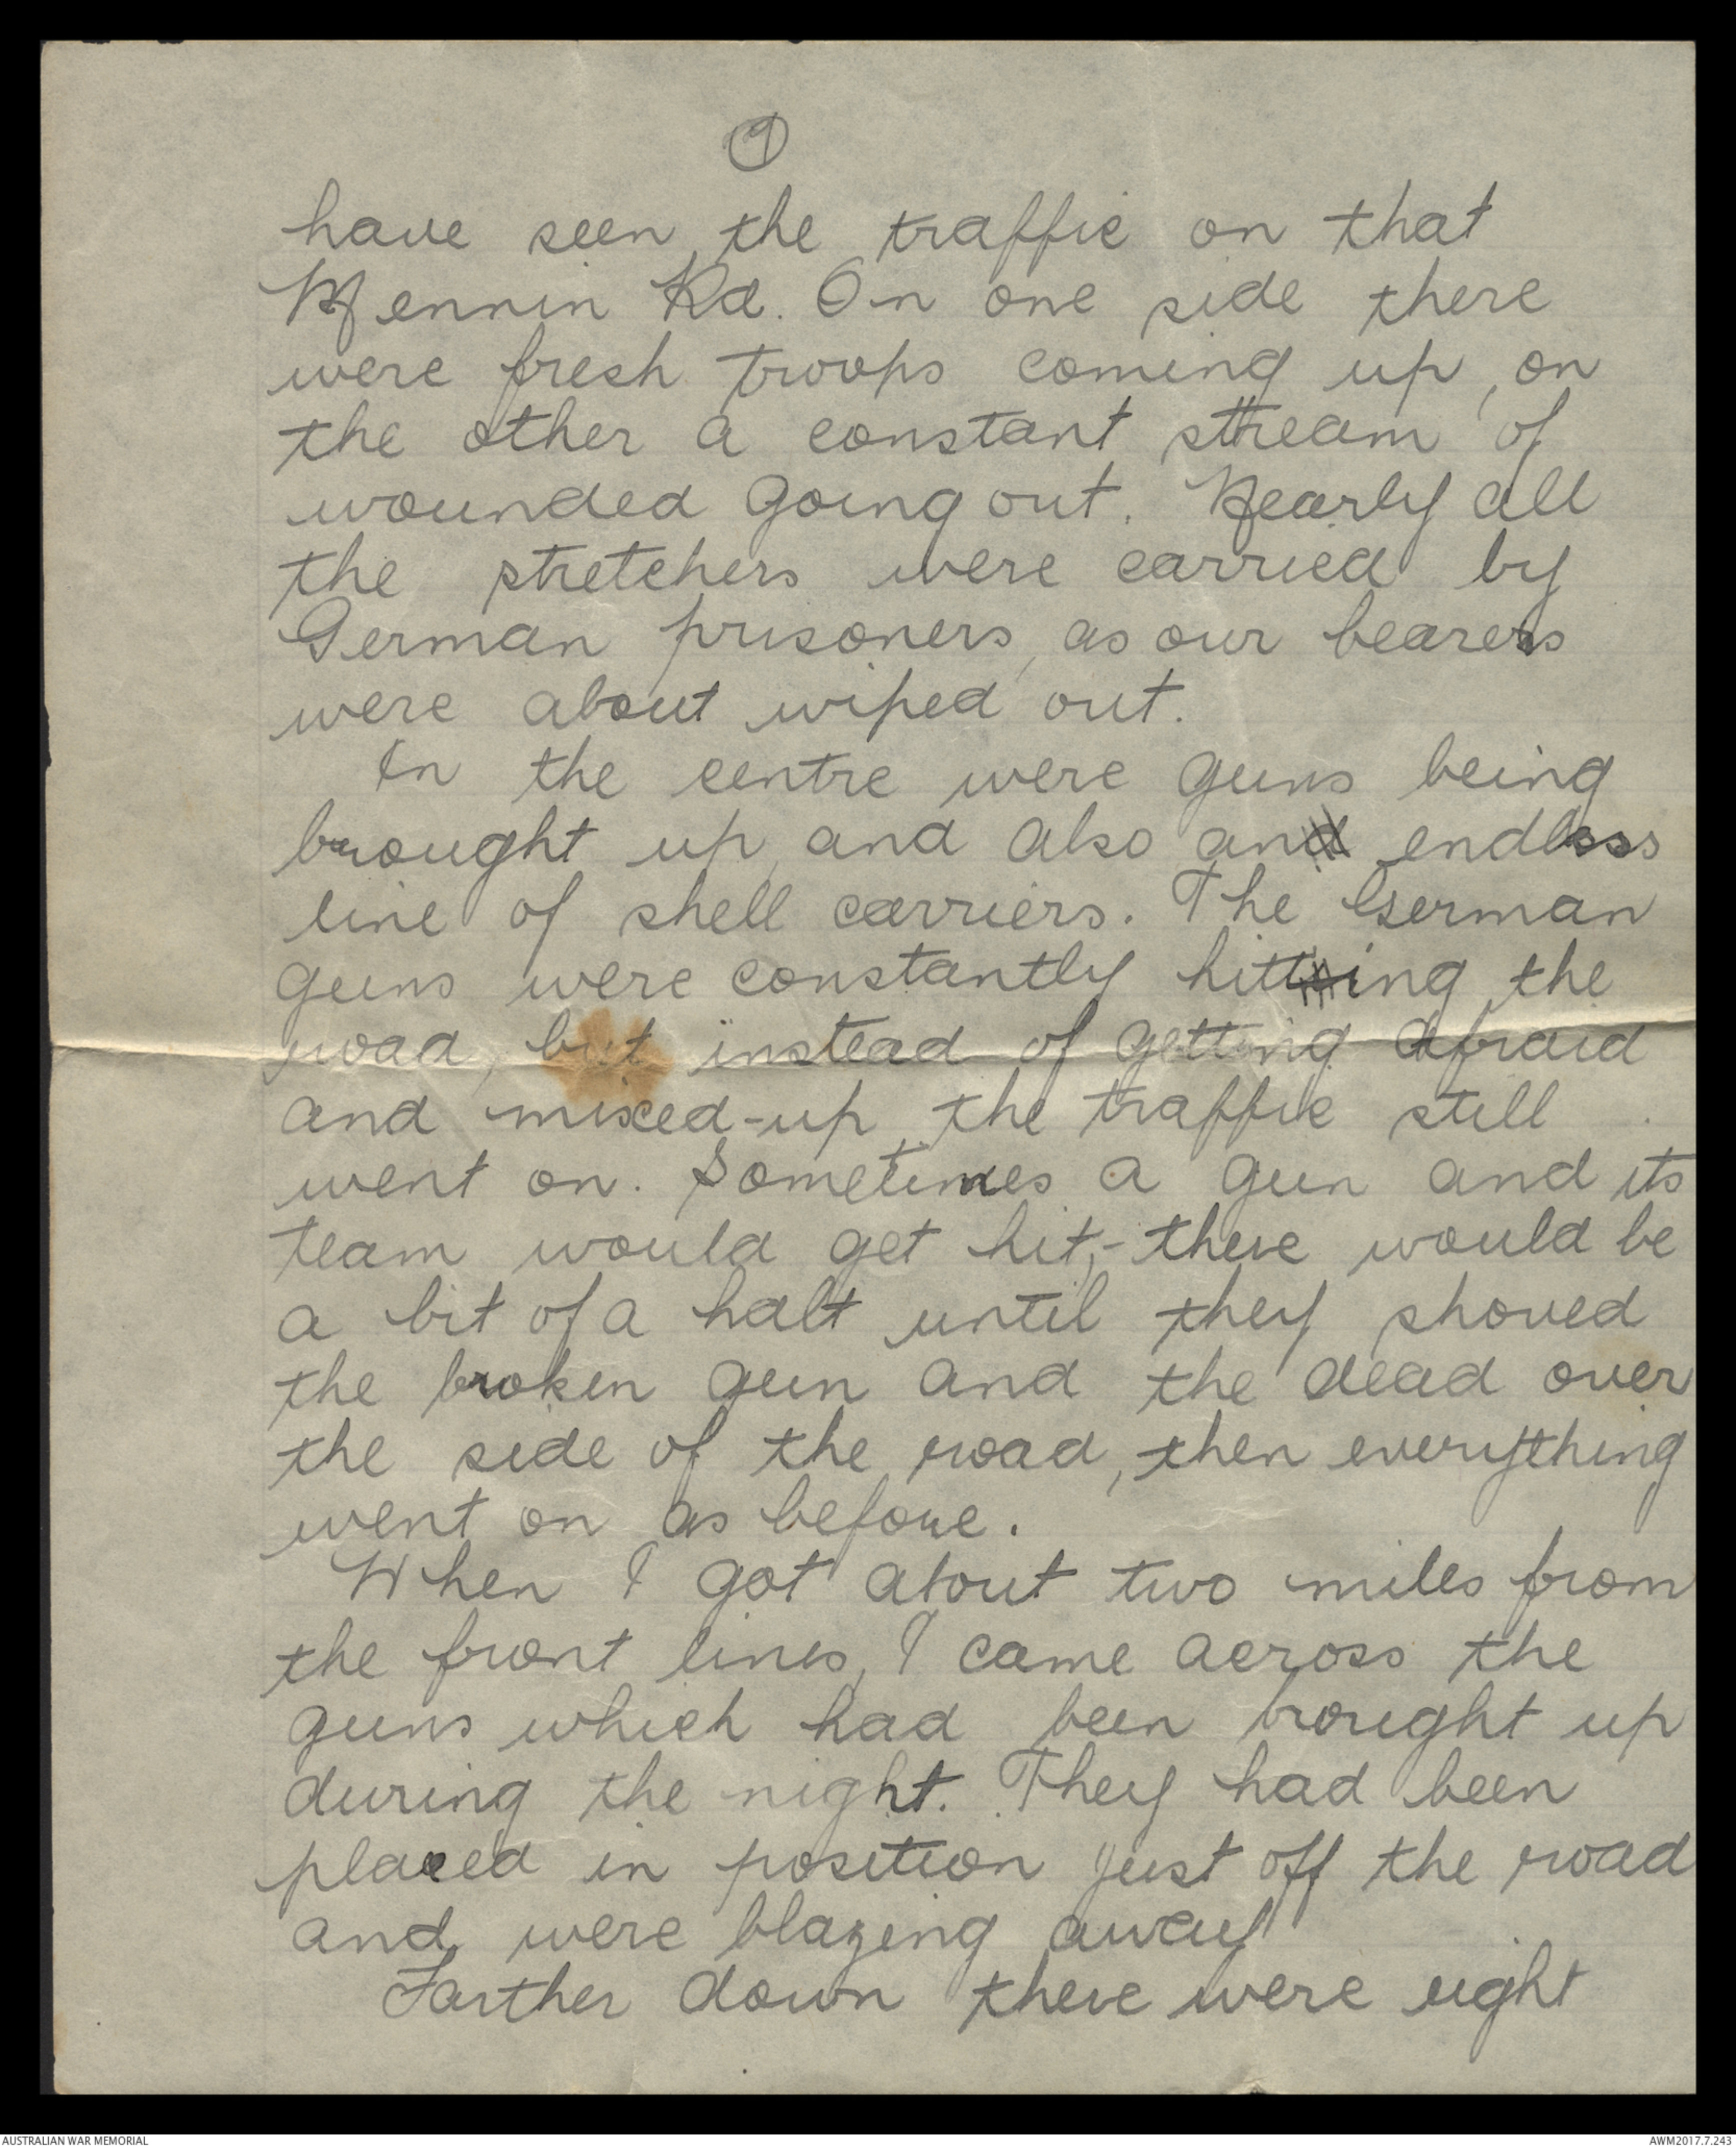 9
have seen the traffic on that
Mennin Rd. On one side there
were fresh troops coming up, on
the other a constant stream of
wounded going out. Nearly all
the stretchers were carried by
German prisoners, as our bearers
were about wiped out.
In the centre were guns being
brought up, and also and endless
line of shell carriers. The German
guns were constantly hitting the
road, but instead of getting afraid
and mixed-up, the traffic still
went on. Sometimes a gun and its
team would get hit,- there would be
a bit of a halt until they shoved
the broken gun and the dead over
the side of the road, then everything
went on as before.
When I got about two miles from
the front lines, I came across the
guns which had been brought up
during the night. They had been
placed in position just off the road
and were blazing away
Farther down there were eight
AUSTRALIAN WAR MEMORIAL
AWM2017.7.243